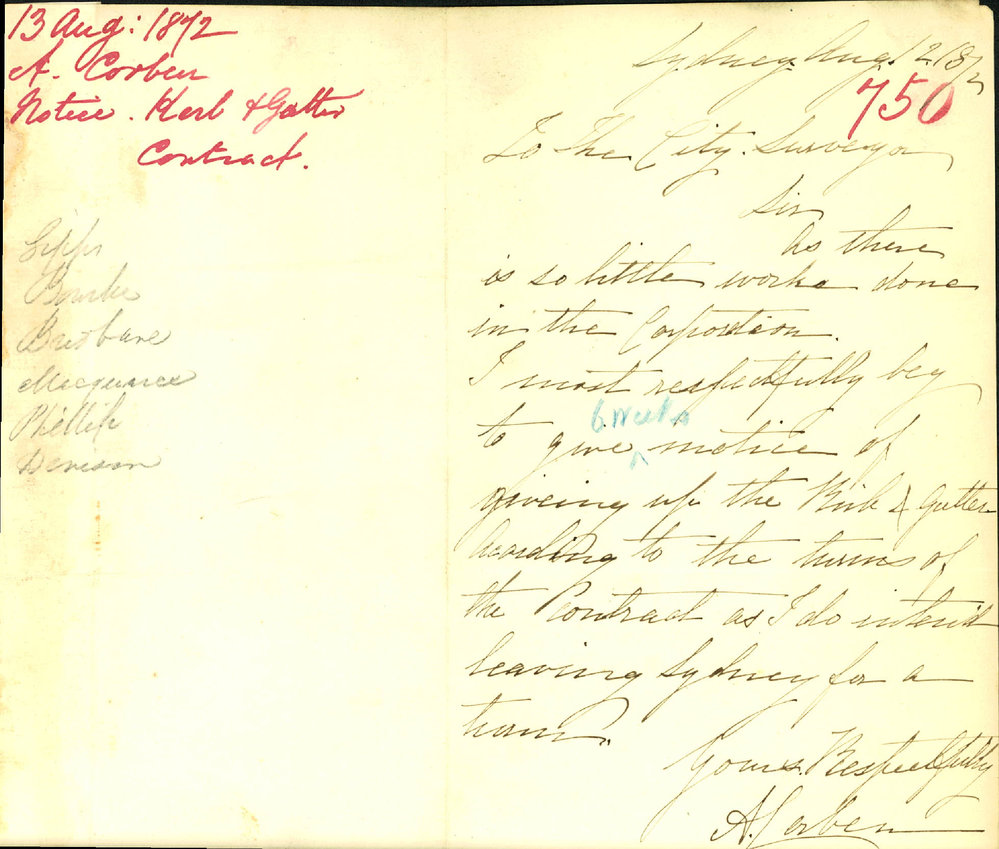 13 Aug: 1872
A. Corben
Notice. Kerb & Gutter
Contract.
Gipps
Bourke
Brisbane
Macquarie
Phillip
Denison
Sydney Aug. 12. 1872
750
To The City Surveyor
Sir
As there
is so little worke done
in the Corporation.
I most respectfully beg
6 weeks
to give ^ notice of
giveing up the Kirb & Gutter
According to the turms of
the Contract as I do intend
leaving Sydney for a
turm.
Yours. Respectfully
A. Corben